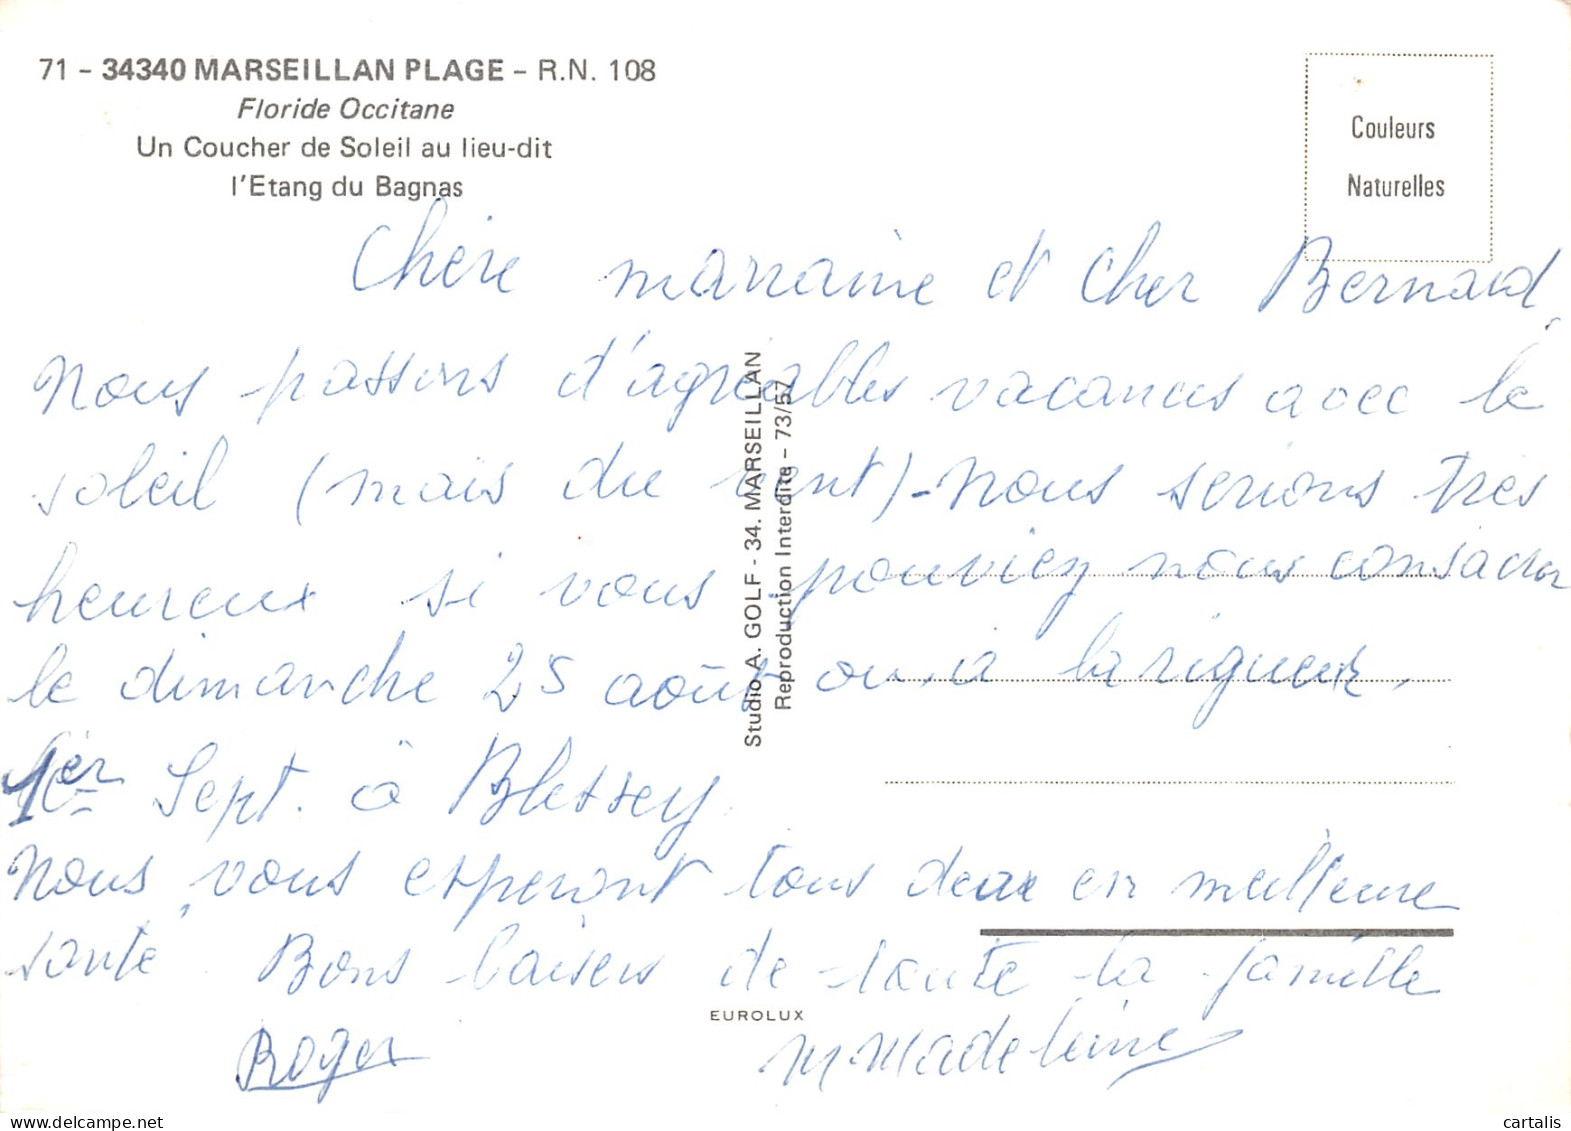 71 - 34340 MARSEILLAN PLAGE - R.N. 108
Floride Occitane
Un Coucher de Soleil au lieu-dit
l'Etang du Bagnas
Couleurs
Naturelles
Chère marraine et cher Bernard,
Nous passons d'agréables vacances avec le
soleil (mais du vent) - Nous serions très
heureux si vous pouviez nous consacrer
le dimanche 25 août ou, à la rigueur,
1er Sept. à Blessey.
Nous vous esperont tous deux en meilleure
santé. Bons baisers de toute la famille
Roger
M Madeleine
Studio A. GOLF - 34. MARSEILLAN
Reproduction Interdite - 73/57
EUROLUX
cartalis